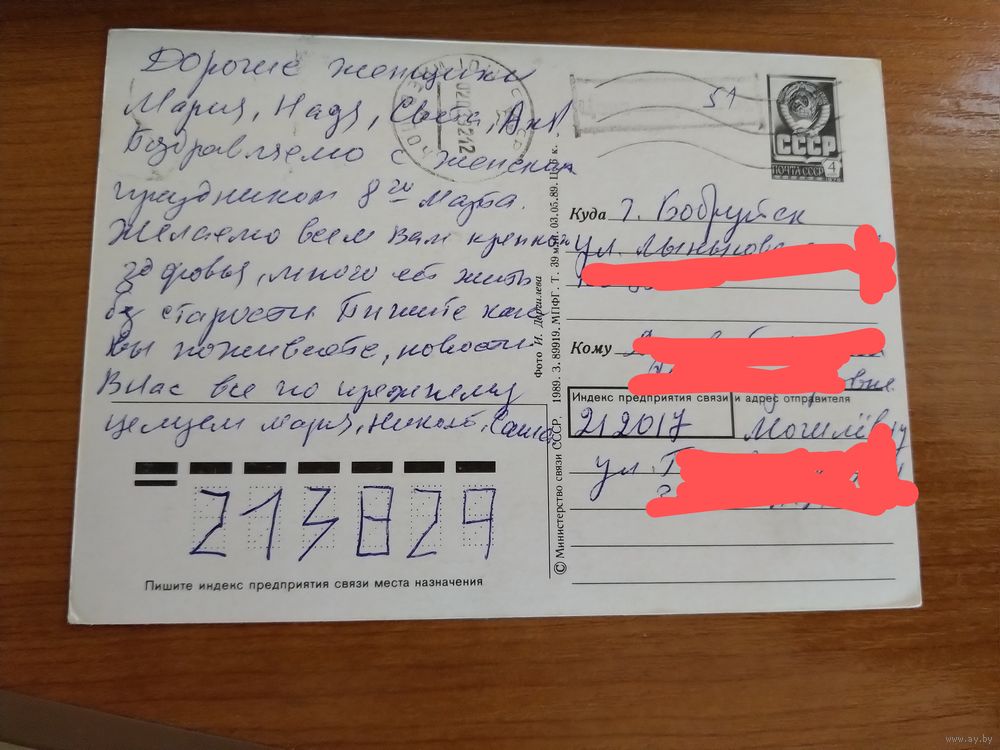 Дорогие женщины
Мария, Надя, Света, Аня.
Поздравляемо с женским
праздником 8го Марта.
Желаемо всем вам крепкого
здоровья, много лет жить
без старости Пишите как
вы поживаете, новости
В нас все по прежнему
целуем Мария, Николай, Саша
213829
Пишите индекс предприятия связи места назначения
© Министерство связи СССР. 1989. З. 89919. МПФГ. Т. 39 млн. 03.05.89. Ц.
Фото И. Дергилева
51
СССР
ПОЧТА СССР 4
Куда г. Бобруйск
ул.
Кому
Индекс предприятия связи и адрес отправителя
212017 Могилёв
ул.
www.ay.by